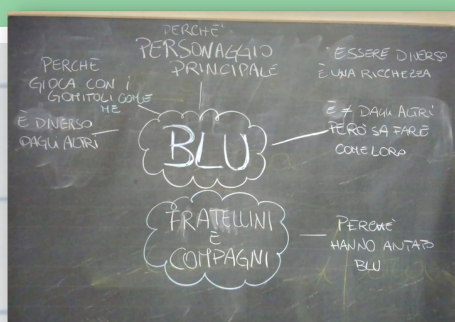 PERCHÈ
PERSONAGGIO
PRINCIPALE
PERCHE
GIOCA CON i
GOMITOLI COME
ME
È DIVERSO
DAGLI ALTRI
"ESSERE DIVERSO
È UNA RICCHEZZA
È ≠ DAGLI ALTRI
PERÒ SA FARE
COME LORO
BLU
FRATELLINI
E
COMPAGNI
PERCHÈ
HANNO AIUTATO
BLU